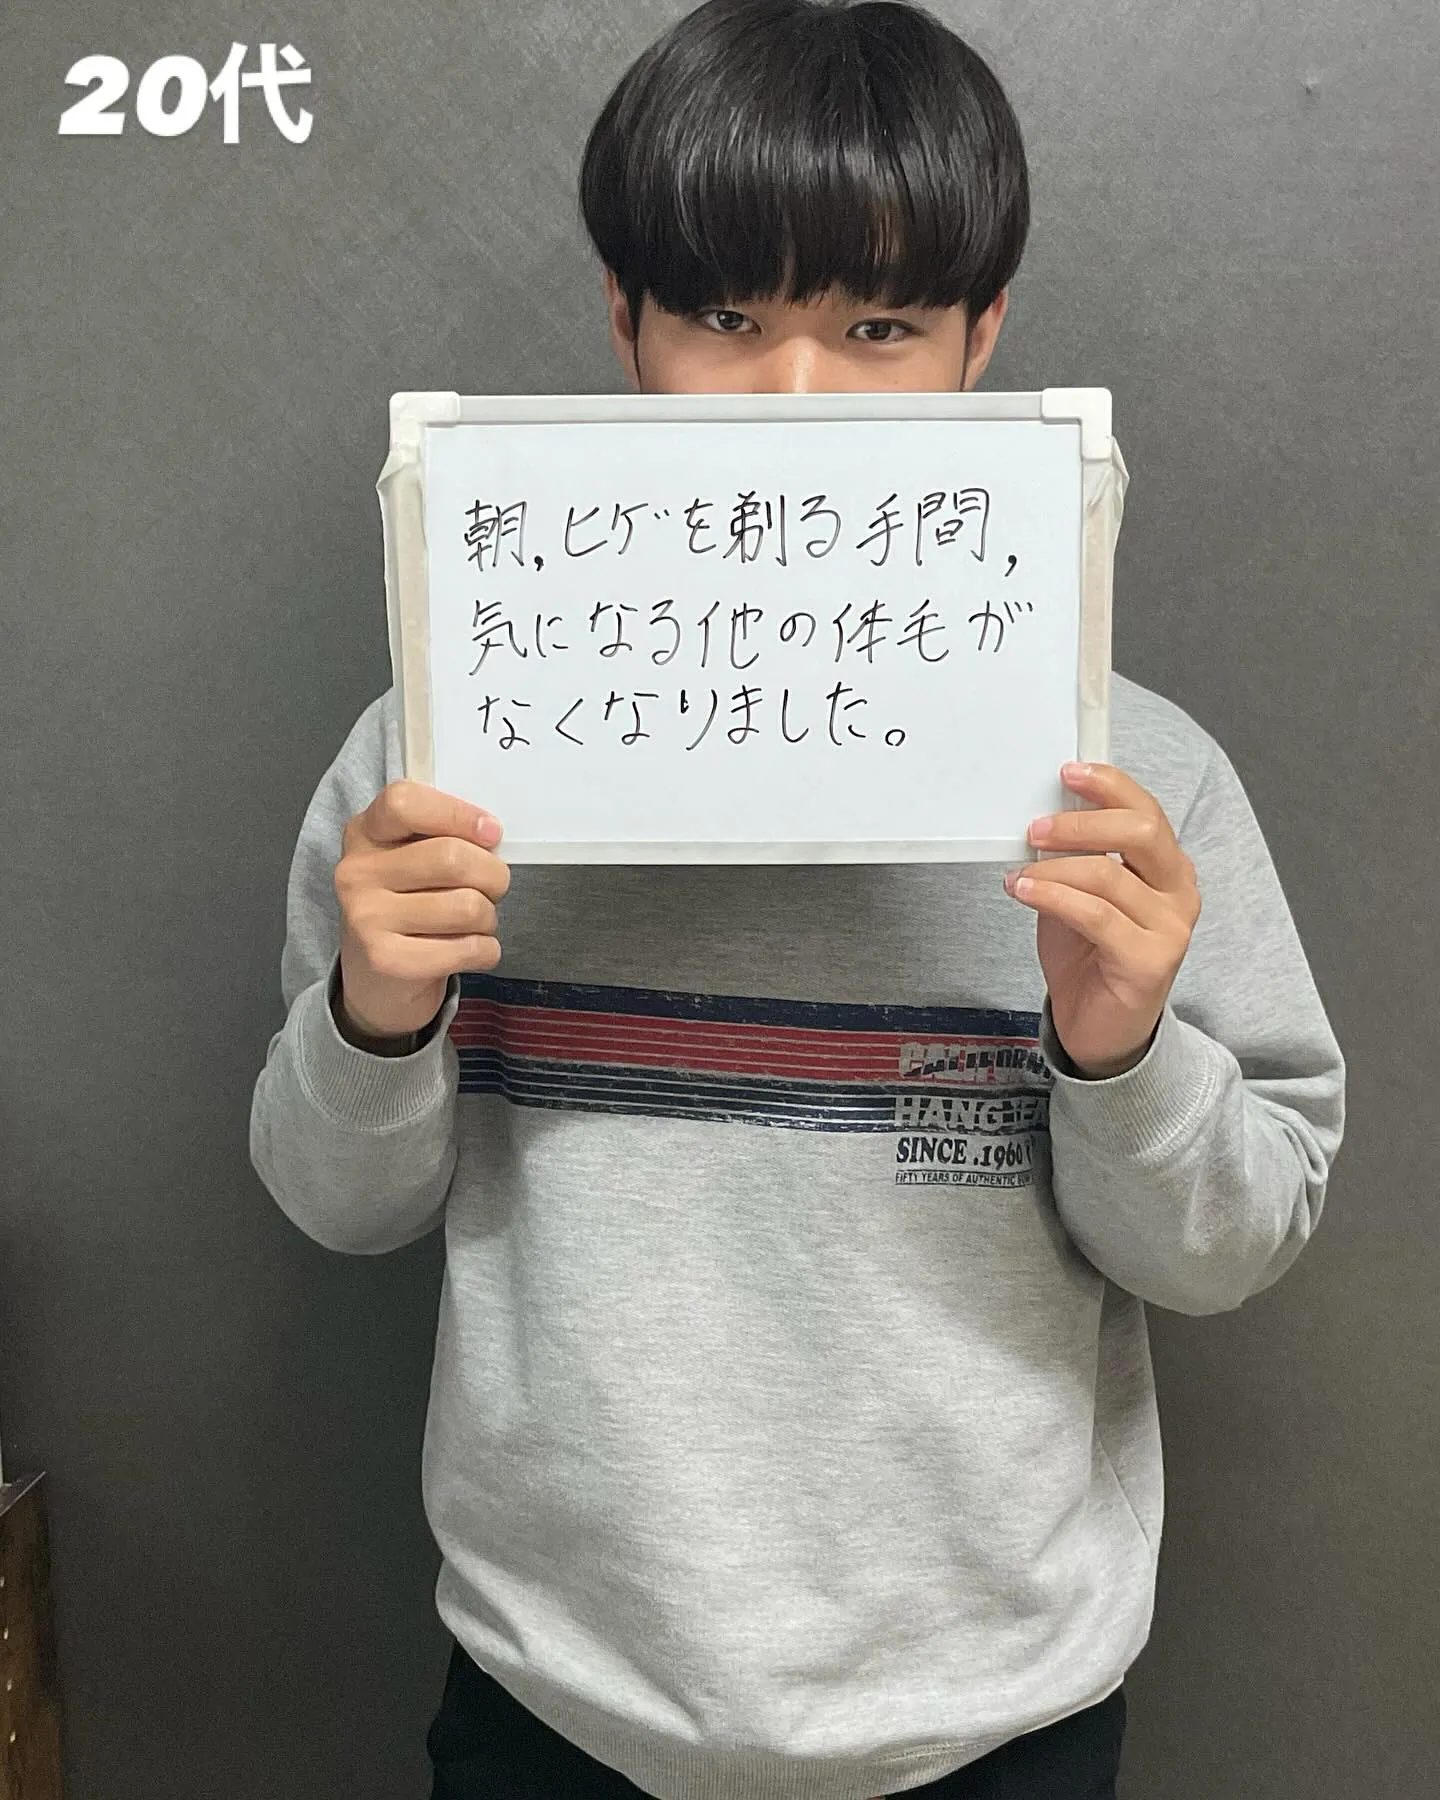 20代
朝,ヒゲを剃る手間,
気になる他の体毛が
なくなりました。
SINCE.1960
FIFTY YEARS OF AUTHENTIC